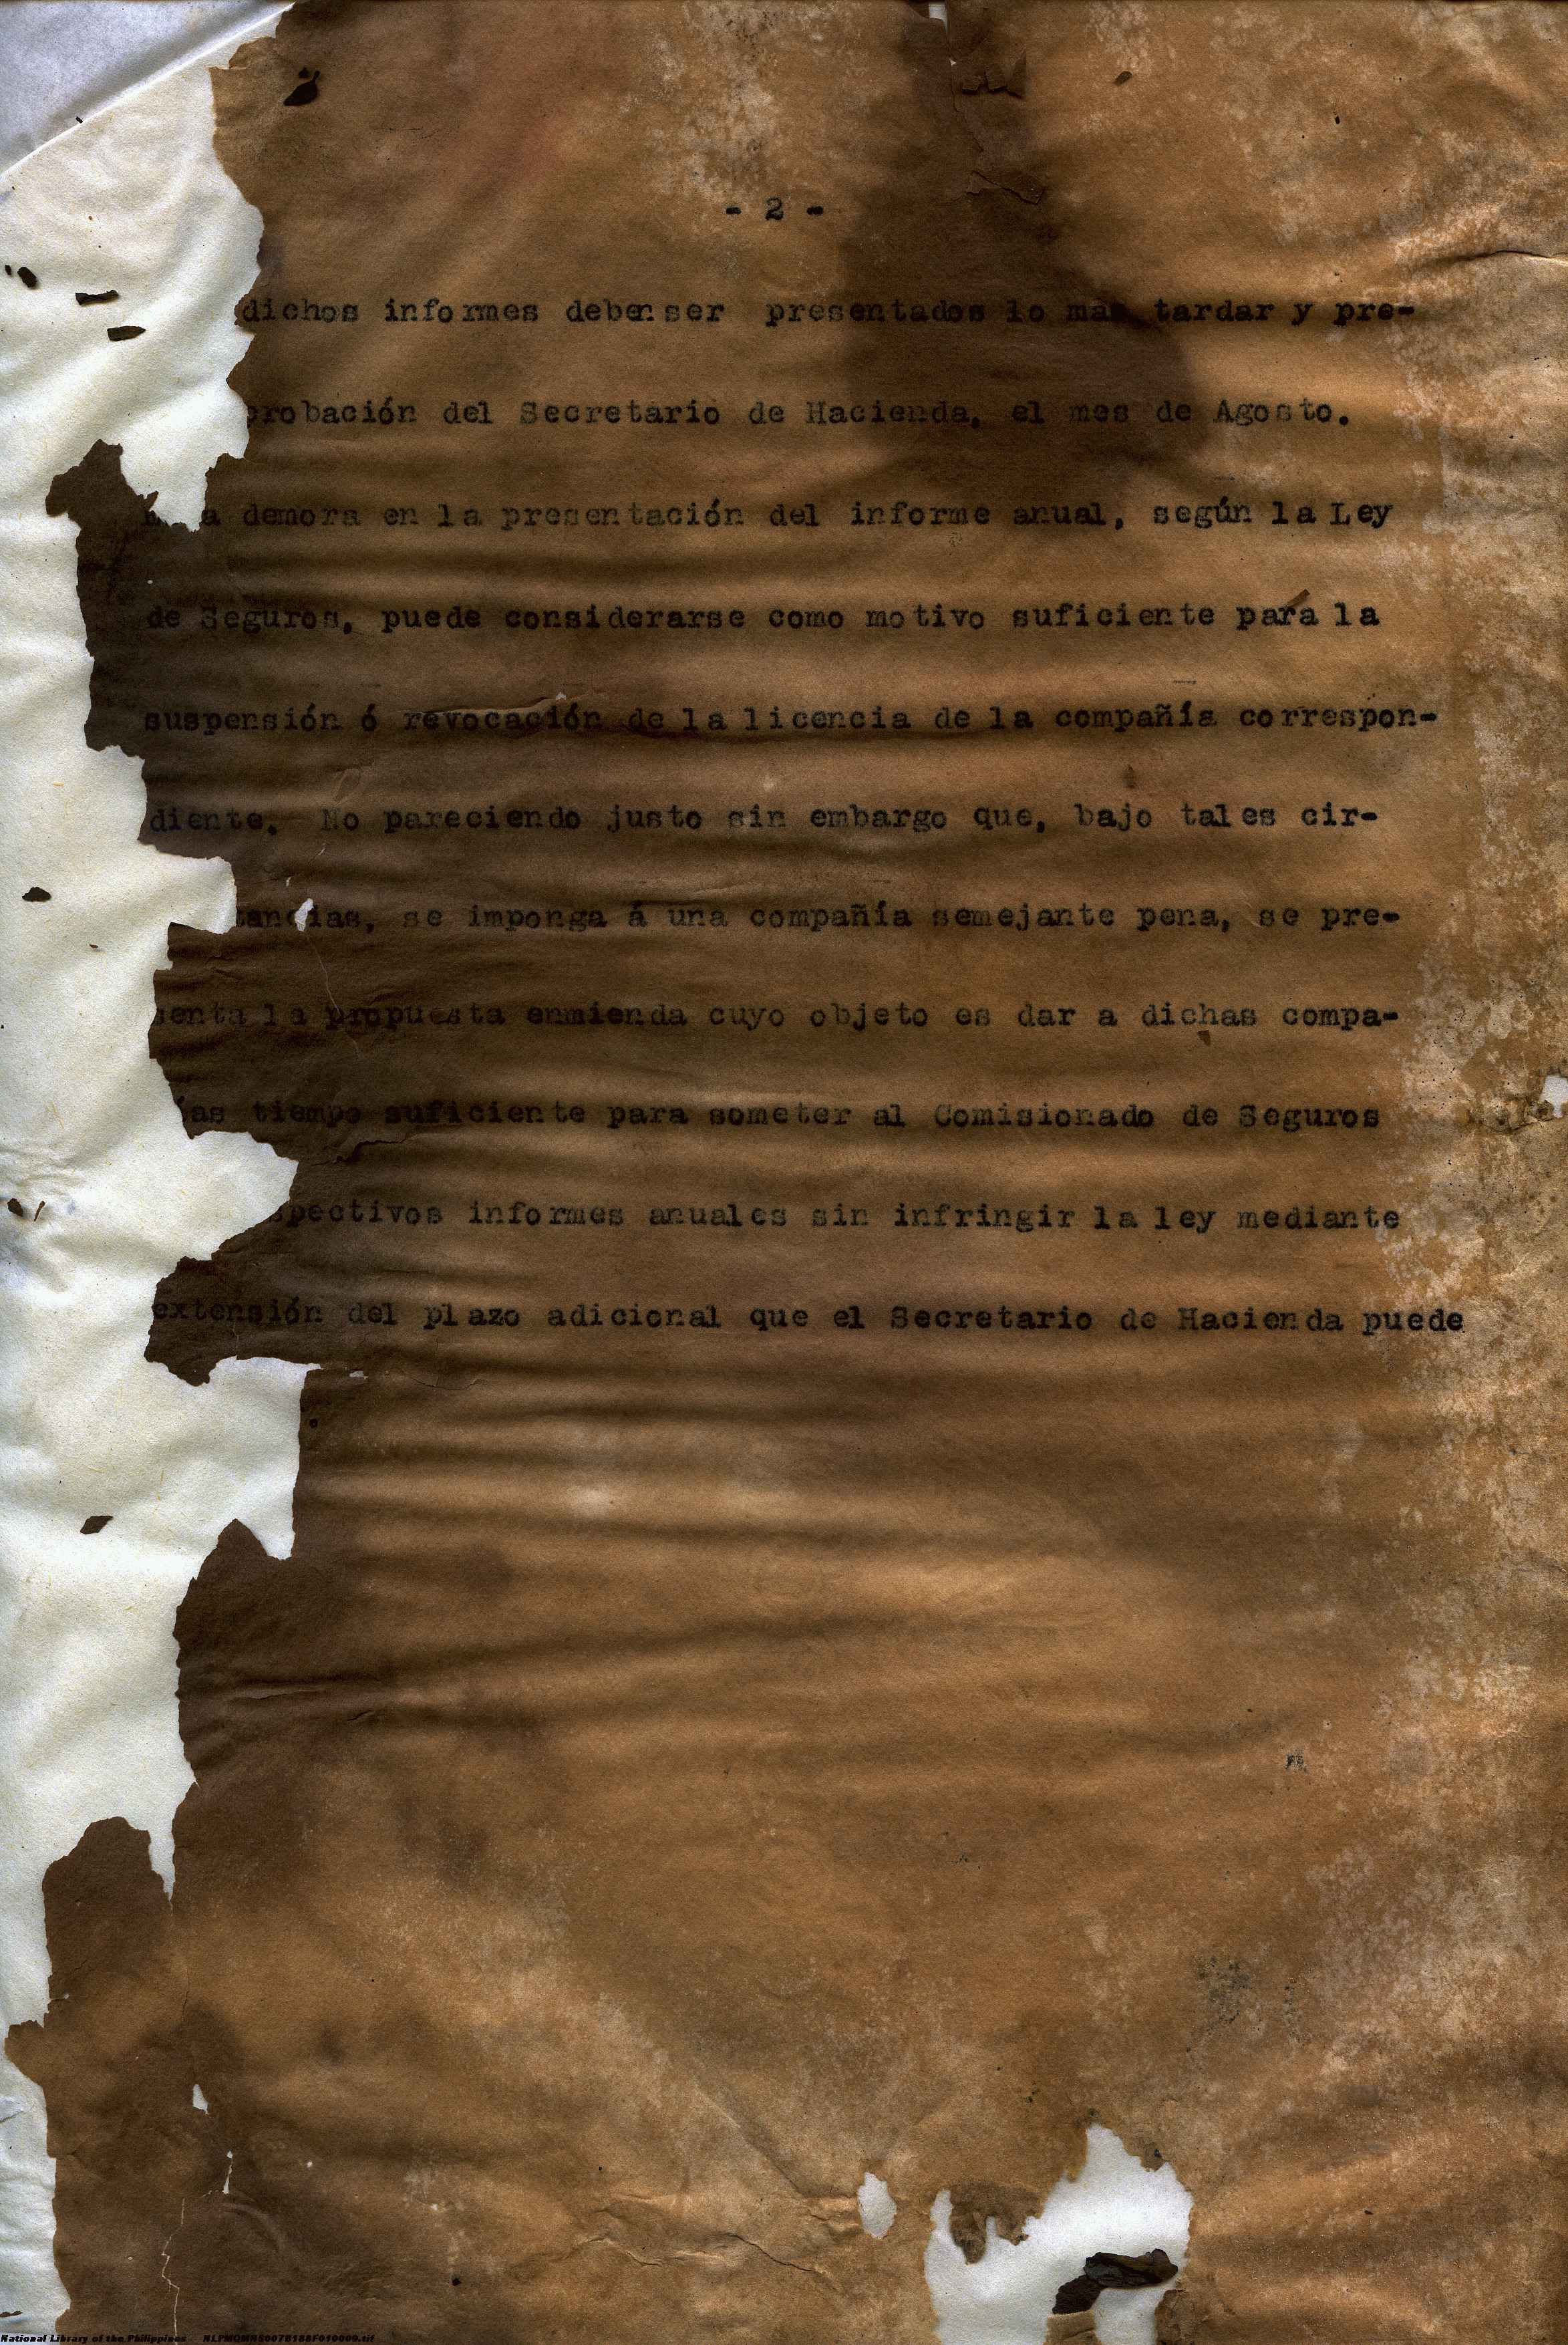 - 2 -
dichos informes deben ser presentados lo más tardar y pre-
probación del Secretario de Hacienda, el mes de Agosto.
demora en la presentación del informe anual, según la Ley
de Seguros, puede considerarse como motivo suficiente para la
suspensión ó revocación de la licencia de la compañía correspon-
diente. No pareciendo justo sin embargo que, bajo tales cir-
tancias, se imponga á una compañía semejante pena, se pre-
senta la propuesta enmienda cuyo objeto es dar a dichas compa-
ías tiempo suficiente para someter al Comisionado de Seguros
spectivos informes anuales sin infringir la ley mediante
extensión del plazo adicional que el Secretario de Hacienda puede
National Library of the Philippines NLPMQMNS007B188F010009.tif